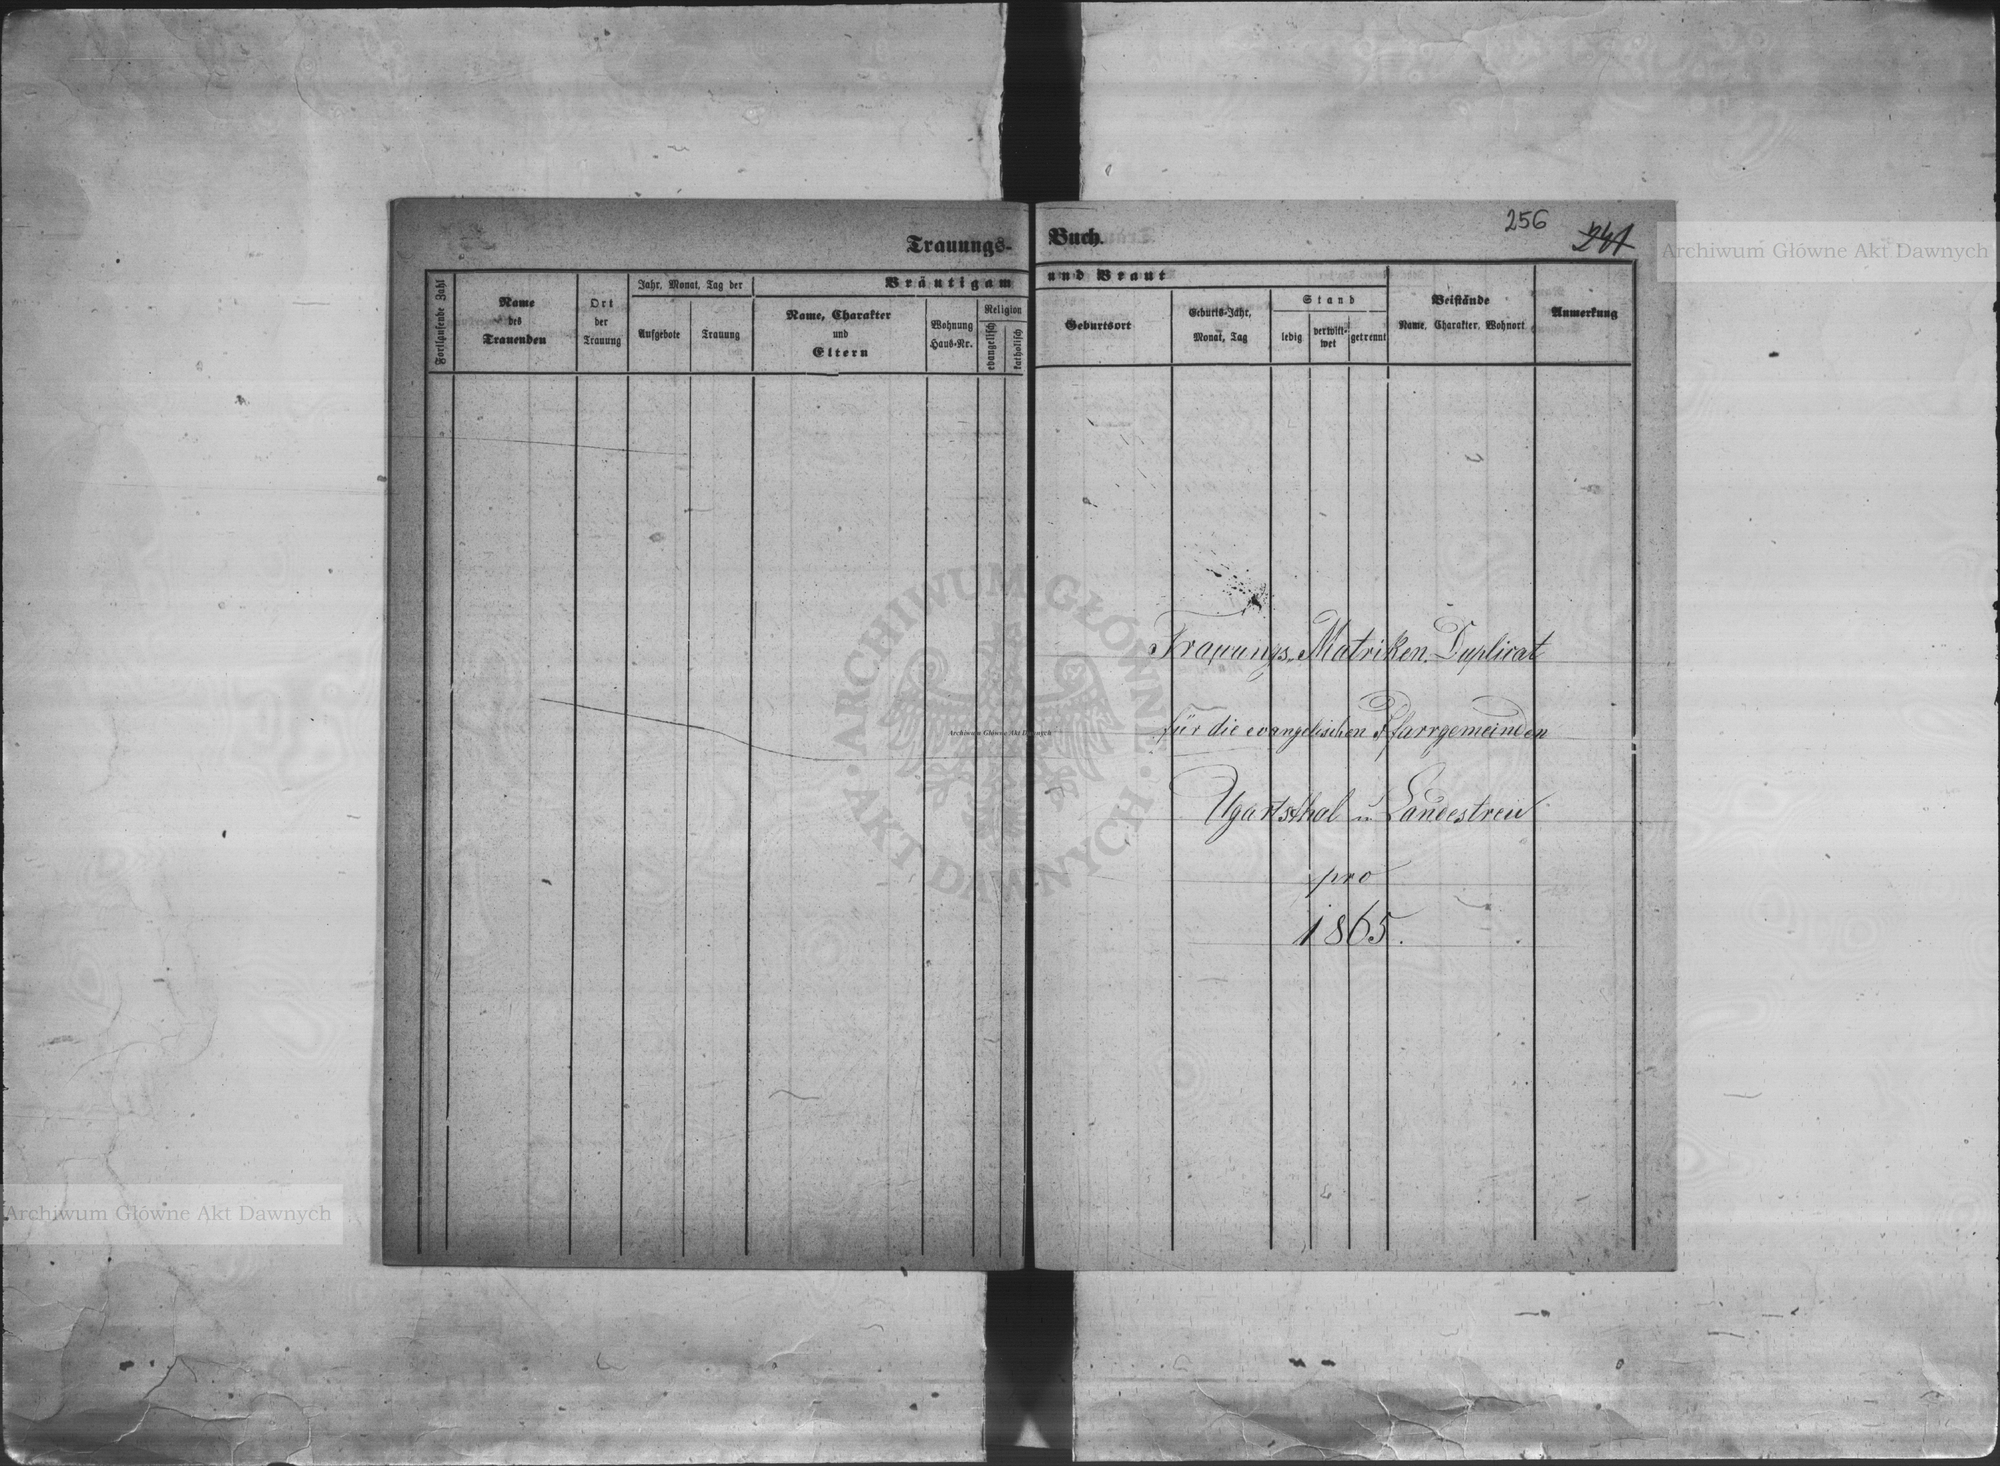 256
241
Trauungs-Buch.
Fortlaufende Zahl
Name
des
Trauenden
Ort
der
Trauung
Jahr, Monat, Tag der
Aufgebote
Trauung
Bräutigam
Name, Charakter
und
Eltern
Wohnung
Haus-Nr.
Religion
evangelisch
katholisch
und Braut
Geburtsort
Geburts-Jahr,
Monat, Tag
Stand
ledig
verwitt-
wet
getrennt
Beistände
Name, Charakter, Wohnort
Anmerkung
Trauungs-Matriken-Duplicat
für die evangelischen Pfarrgemeinden
Ugartsthal u Landestreu
pro
1865.
Archiwum Główne Akt Dawnych
ARCHIWUM GŁÓWNE · AKT DAWNYCH ·
Archiwum Główne Akt Dawnych
Archiwum Główne Akt Dawnych